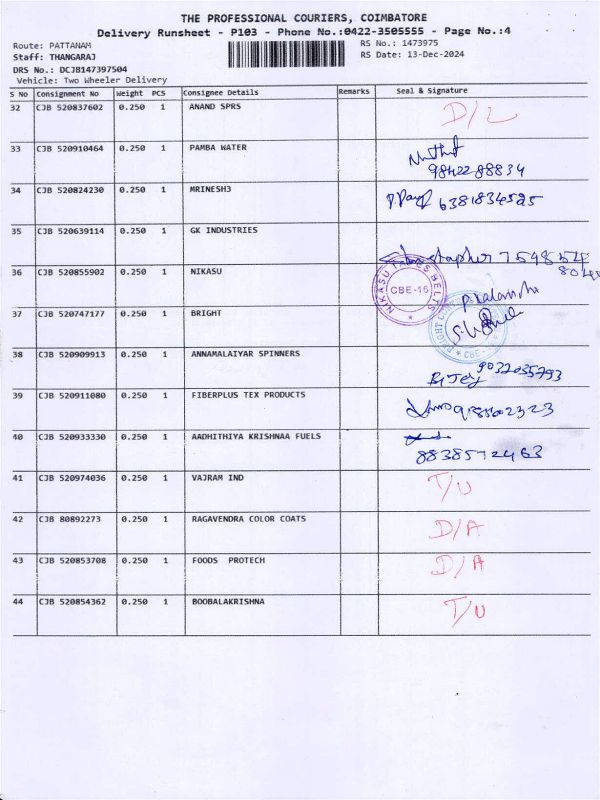 THE PROFESSIONAL COURIERS, COIMBATORE
Delivery Runsheet - P103 - Phone No.:0422-3505555 - Page No.:4
Route: PATTANAM RS No.: 1473975
Staff: THANGARAJ RS Date: 13-Dec-2024
DRS No.: DCJB147397504
Vehicle: Two Wheeler Delivery
S No Consignment No Weight PCS Consignee Details Remarks Seal & Signature
32 CJB 520837602 0.250 1 ANAND SPRS D/L
33 CJB 520910464 0.250 1 PAMBA WATER
9842288834
34 CJB 520824230 0.250 1 MRINESH3 6381834525
35 CJB 520639114 0.250 1 GK INDUSTRIES
36 CJB 520855902 0.250 1 NIKASU
CBE-16
37 CJB 520747177 0.250 1 BRIGHT
38 CJB 520909913 0.250 1 ANNAMALAIYAR SPINNERS
9032035793
39 CJB 520911080 0.250 1 FIBERPLUS TEX PRODUCTS
40 CJB 520933330 0.250 1 AADHITHIYA KRISHNAA FUELS
8838572463
41 CJB 520974036 0.250 1 VAJRAM IND T/U
42 CJB 80892273 0.250 1 RAGAVENDRA COLOR COATS D/A
43 CJB 520853708 0.250 1 FOODS PROTECH D/A
44 CJB 520854362 0.250 1 BOOBALAKRISHNA T/U